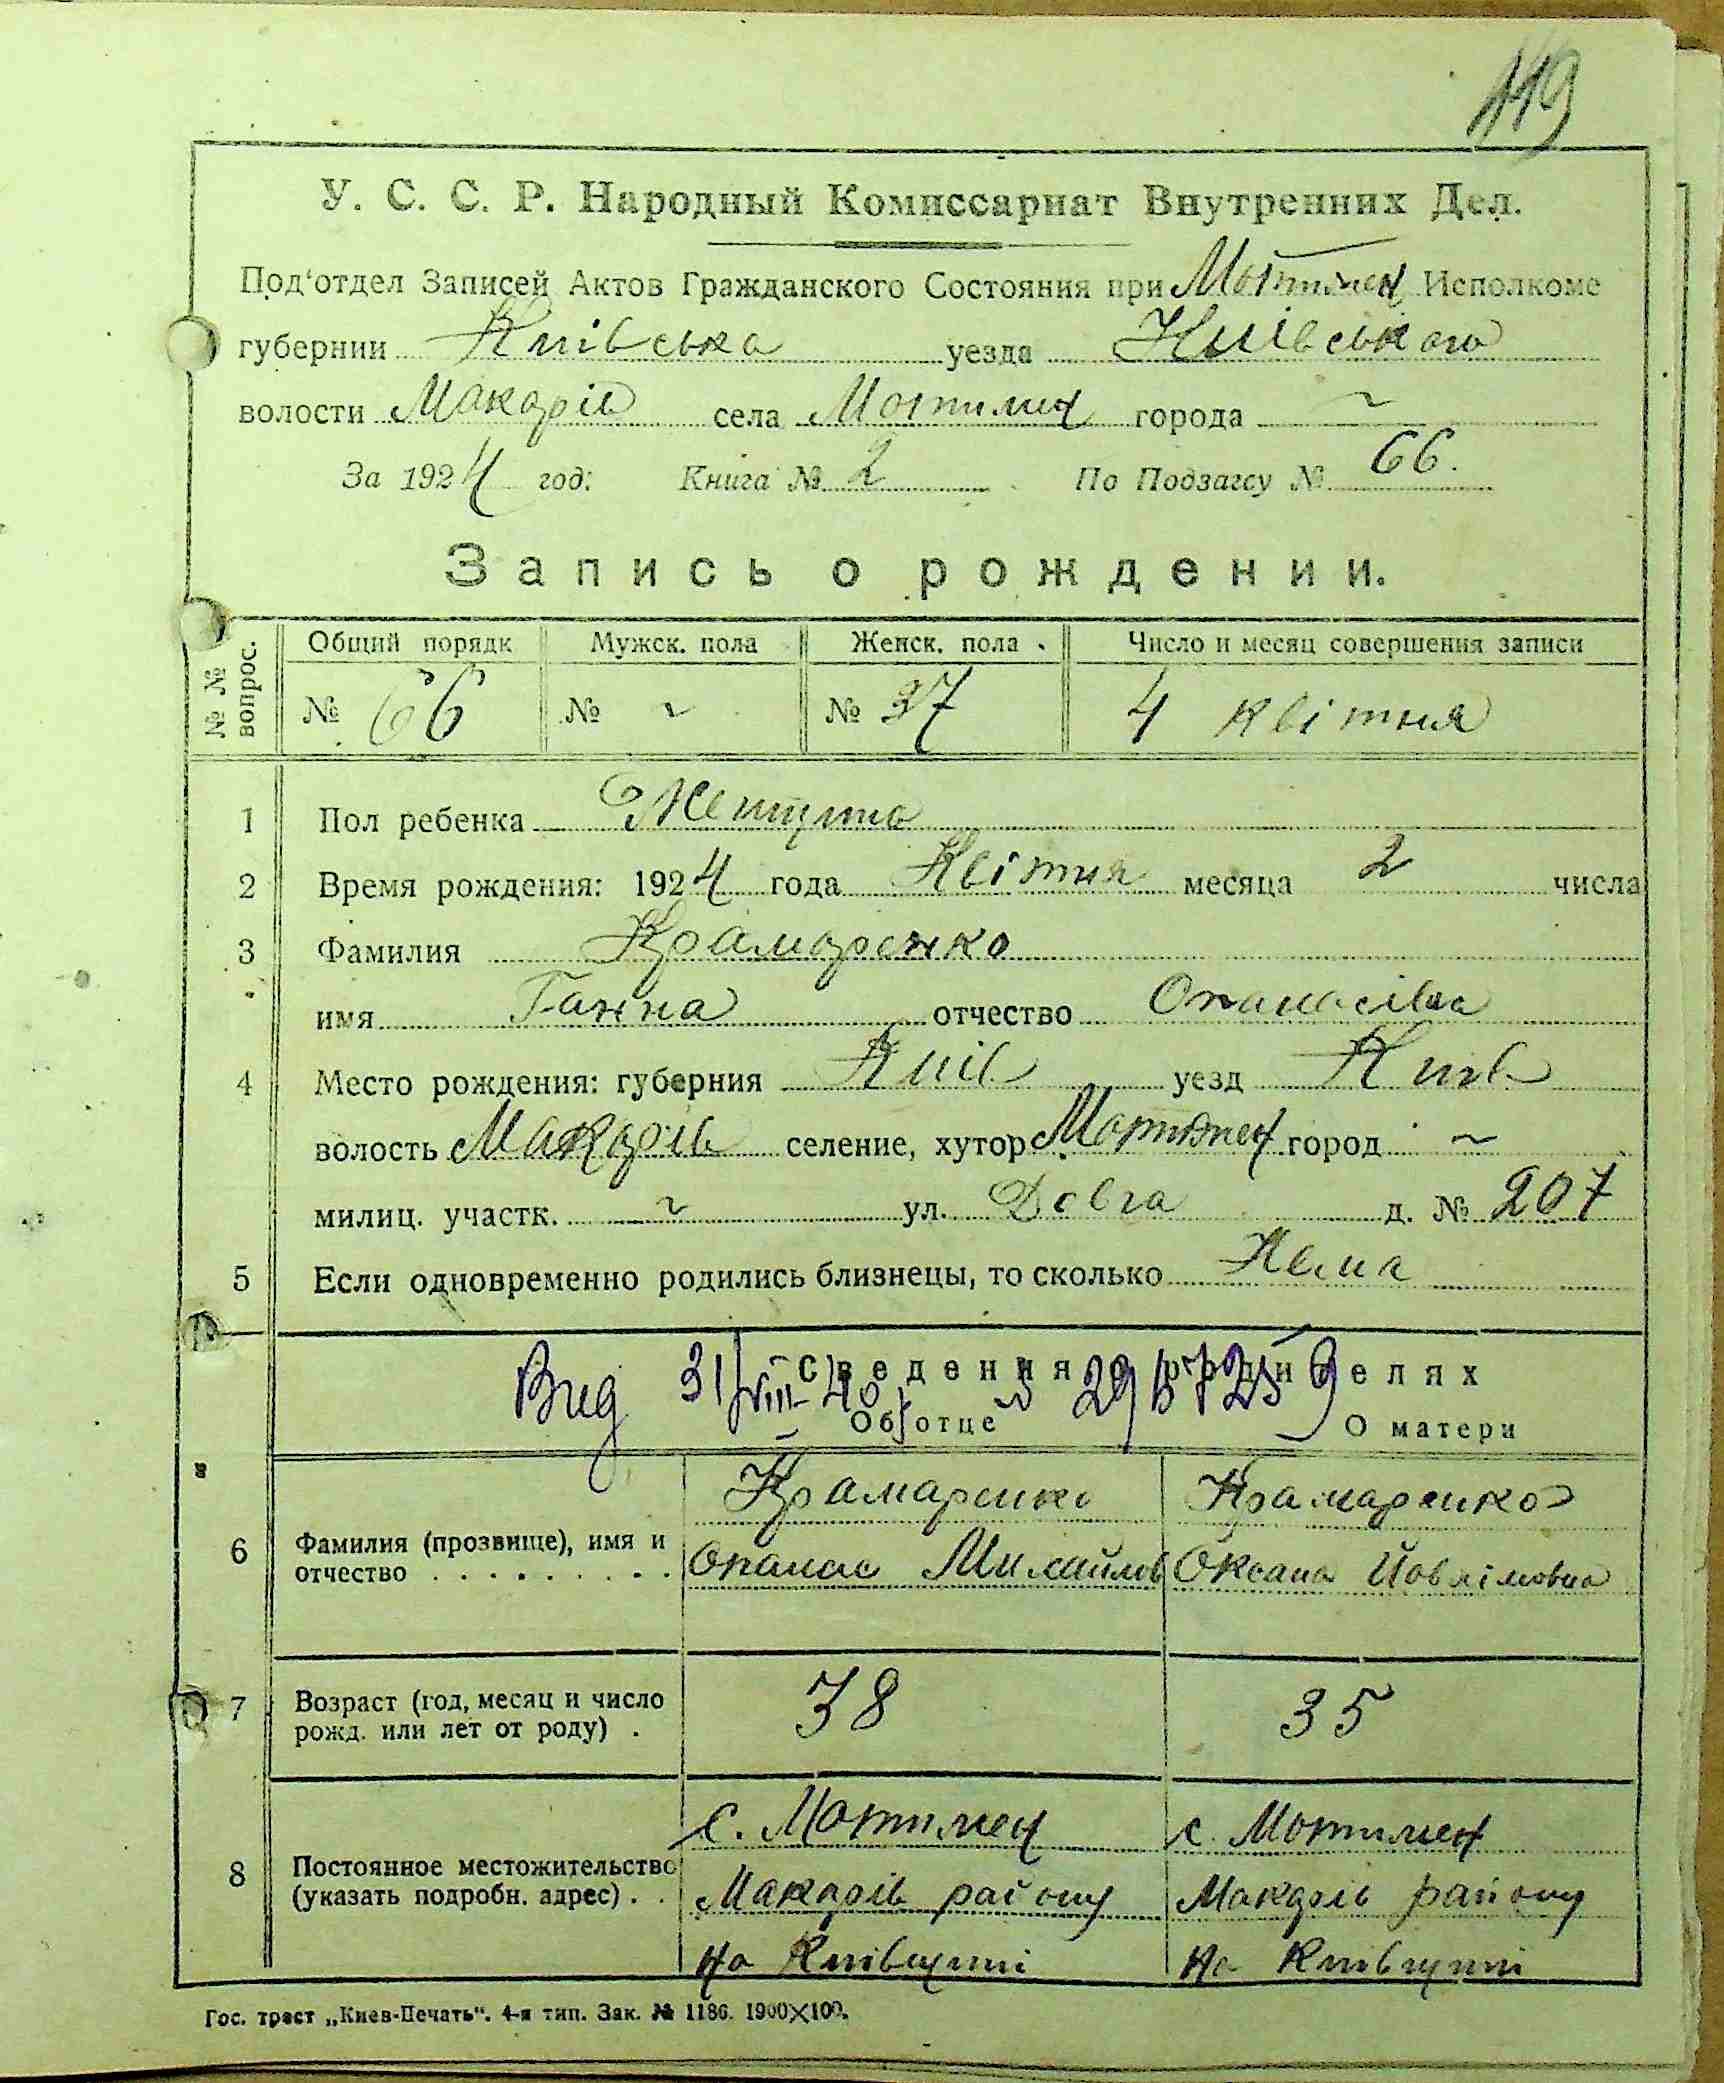 119
У. С. С. Р. Народный Комиссариат Внутренних Дел.
Под'отдел Записей Актов Гражданского Состояния при Мотижен Исполкоме
губернии Київська уезда Київського
волости Макарів села Мотижен города ~
За 1924 год: Книга № 2 По Подзагсу № 66.
Запись о рождении.
№ № вопрос. Общий порядк Мужск. пола Женск. пола Число и месяц совершения записи
№ 66 № ~ № 37 4 квітня
1 Пол ребенка Женщина
2 Время рождения: 1924 года Квітня месяца 2 числа
3 Фамилия Крамаренко
имя Ганна отчество Опанасівна
4 Место рождения: губерния Київ уезд Київ
волость Макарів селение, хутор Мотижен город ~
милиц. участк. ~ ул. Довга д. № 207
5 Если одновременно родились близнецы, то сколько Нема
Сведения о родителях
Вид 31/VIII-40
Об отце О матери
Крамаренко Крамаренко
6 Фамилия (прозвище), имя и отчество . . . . . . . . . Опанас Михайлов Оксана
7 Возраст (год, месяц и число рожд. или лет от роду) . 38 35
с. Мотижен с. Мотижен
8 Постоянное местожительство (указать подробн. адрес) . . Макарів району Макарів району
на Київщині на Київщині
Гос. трест „Киев-Печать“. 4-я тип. Зак. № 1186. 1900×100.